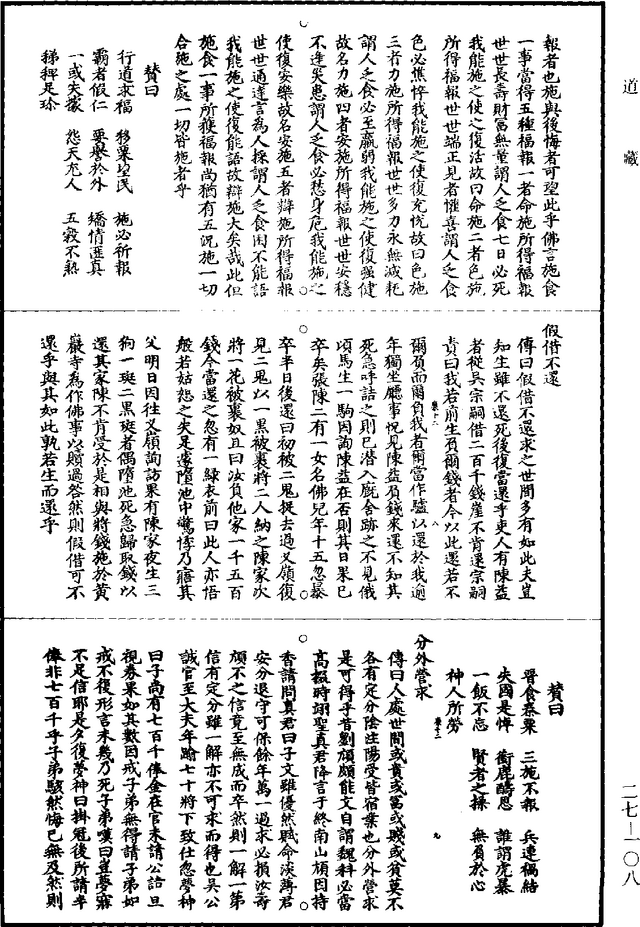 道藏
報者也施與後悔者可望此乎佛言施食
一事當得五種福報一者命施所得福報
世世長壽財富無量謂人乏食七日必死
我能施之使之復活故曰命施二者色施
所得福報世世端正見者懽喜謂人乏食
色必憔悴我能施之使復充悅故曰色施
三者力施所得福報世世多力永無減耗
謂人乏食必至羸弱我能施之使復强健
故名力施四者安施所得福報世世安穩
不逢災患謂人乏食必愁身危我能施之
使復安樂故名安施五者辯施所得福報
世世通達言為人採謂人乏食困不能語
我能施之使復能語故辯施大矣哉此但
施食一事所獲福報尚猶有五況施一切
合施之處一切皆施者乎
贊曰
行道求福　移粟望民　施必祈報
霸者假仁　要譽於外　矯情匪真
一或失據　怨天尤人　五穀不熟
稊稗是珍
假借不還
傳曰假借不還求之世間多有如此夫豈
知生雖不還死後復當還乎吏人有陳益
者從吳宗嗣借二百千錢崖不肯還宗嗣
責曰我若前生負爾錢者今以此還若不
爾負而爾負我者爾當作驢以還於我逾
年獨坐聽事怳見陳益負錢來還不知其
死急呼詰之則已潛入廐舍跡之不見俄
頃馬生一駒因詢陳益在否則其日果已
卒矣張陳二有一女名佛兒年十五忽暴
卒半日後還曰初被二鬼捉去過又嶺復
見二鬼以一黑被裹將二人納之陳家次
將一花被裹奴且曰汝負他家一千五百
錢今當還之忽有一綠衣前曰此人亦悟
般若姑恕之失足遂墮池中驚悸乃寤其
父明日因往又嶺詢訪果有陳家夜生三
狗一斑二黑斑者偶墮池死急歸取錢以
還其家陳不肯受於是相與將錢施於黃
巖寺為作佛事以贖過咎然則假借可不
還乎與其如此孰若生而還乎
贊曰
晉食秦粟　三施不報　兵連禍結
失國是悼　銜鹿疇恩　誰謂虎暴
一飯不忘　賢者之操　無負於心
神人所勞
分外營求
傳曰人處世間或貴或富或賤或貧莫不
各有定分陰注陽受皆宿業也分外營求
是可得乎昔劉頎頗能文自謂魏科必當
高掇時翊聖真君降言于終南山頎因持
香請問真君曰子文雖優然賦命淡薄君
安分退守可保餘年萬一過求必損汝壽
頎不之信竟至無成而卒然則一解一第
信有定分雖一解亦不可求而得也吳公
誠官至大夫年踰七十將下致仕忽夢神
曰子尚有七百千俸金在官未請公詰旦
視券果如其數因戒子弟無得請子弟如
戒不復形言未幾乃死子弟嘆曰豈夢寐
不足信耶是夕復夢神曰掛冠後所請半
俸非七百千乎子弟駭然悔已無及然則
二七—一〇八